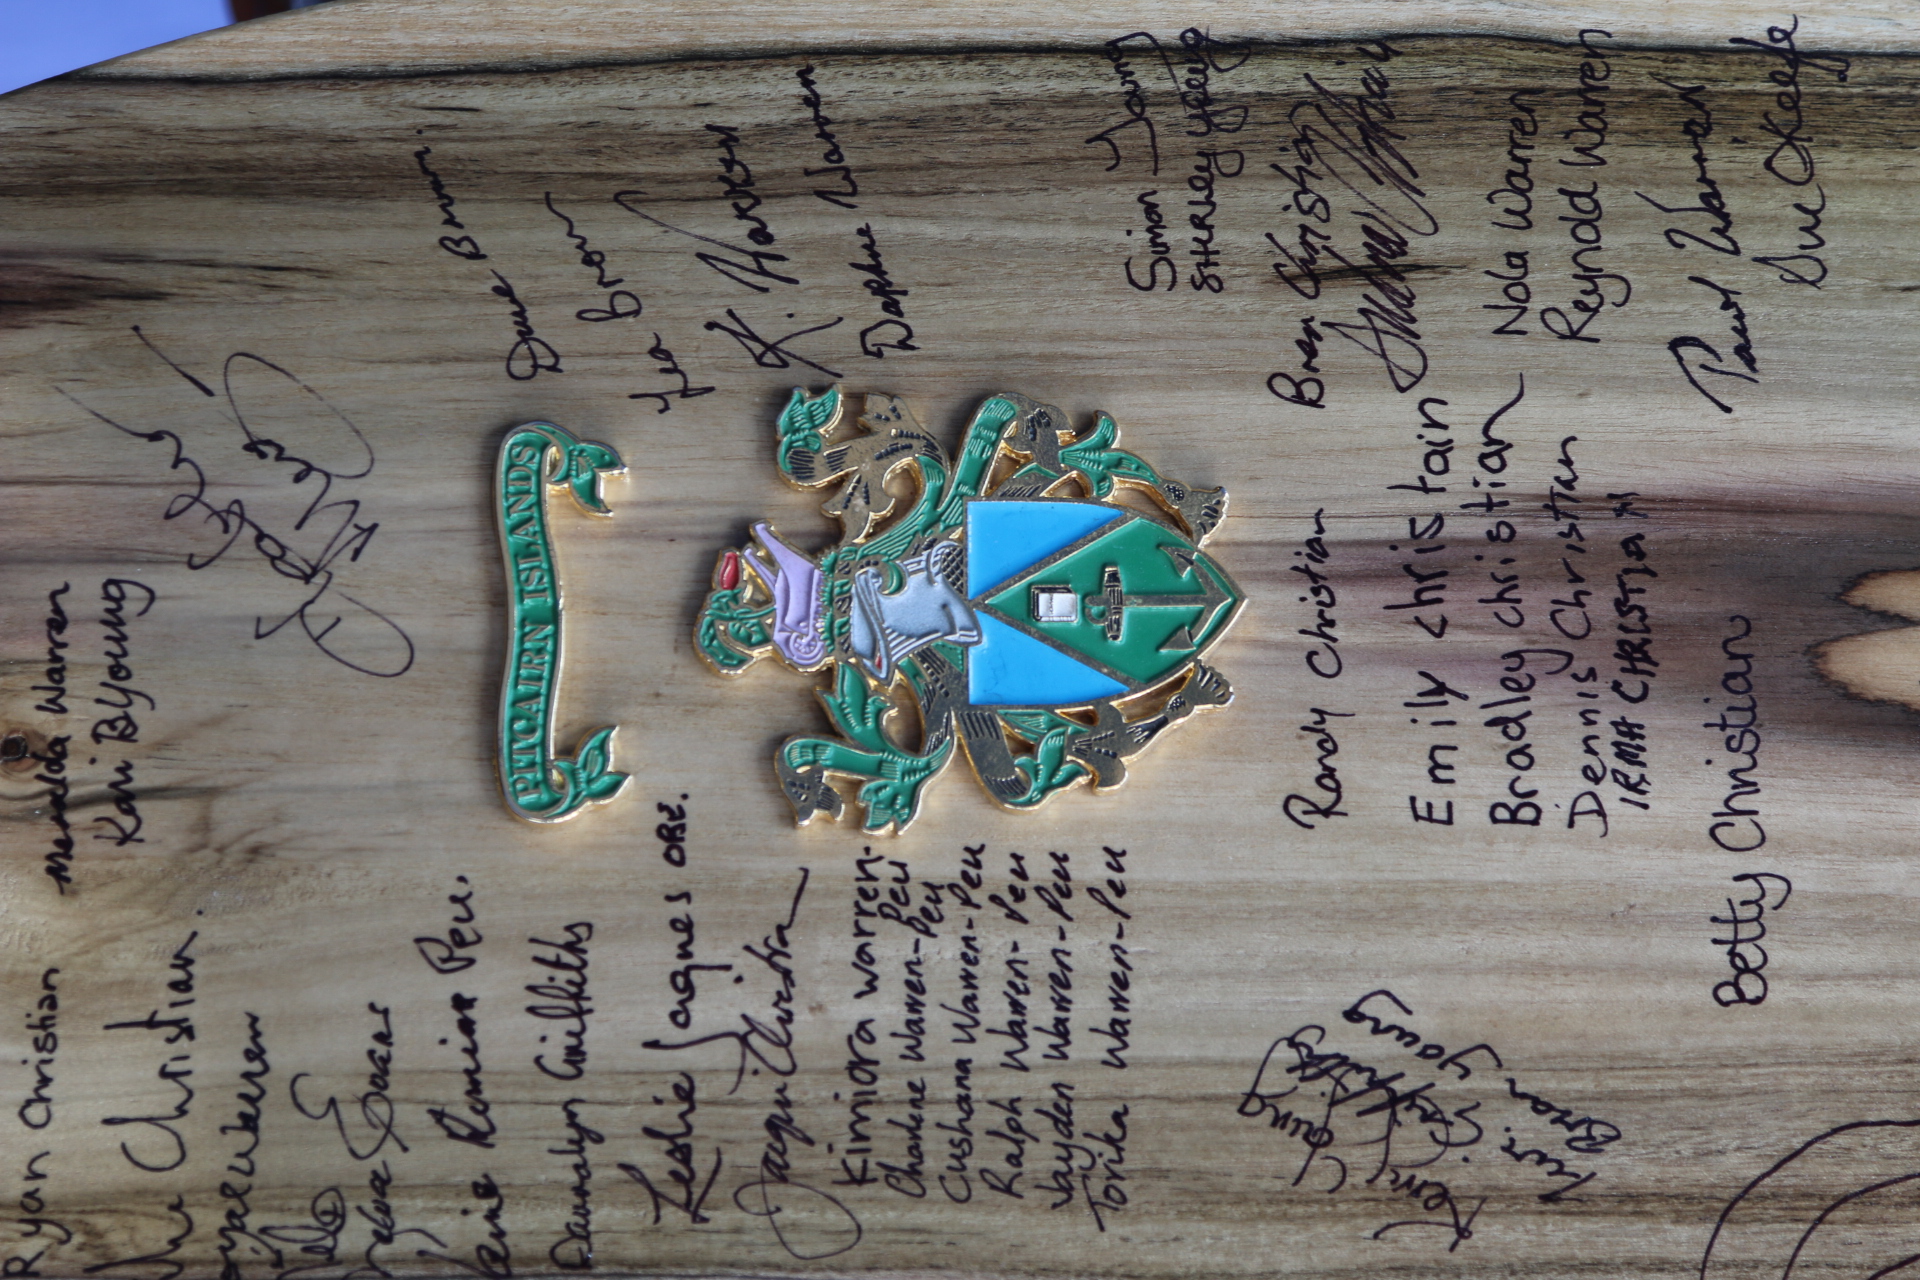 Ryan Christian
Meralda Warren
Kari BYoung
Christian
Dave Brown
Lea Brown
K. Harken
Daphne Warren
PITCAIRN ISLANDS
Peu.
Dawnalyn Griffiths
Leslie Jaques OBE.
Jacqui Christian
Kimiora Warren-
Peu
Charlene Warren-Peu
Cushana Warren-Peu
Ralph Warren-Peu
Jayden Warren-Peu
Torika Warren-Peu
Simon Young
SHIRLEY Young
Christian
Randy Christian
Emily christain
Bradley christian
Dennis Christian
IRMA CHRISTIAN
Nola Warren
Reynold Warren
Pawl Warren
Sue O'Keefe
Betty Christian
Brian Young